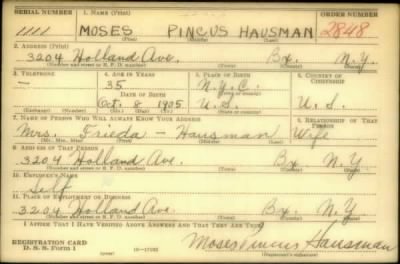 SERIAL NUMBER 1. NAME (Print) ORDER NUMBER
1111 MOSES PINCUS HAUSMAN 2848
(First) (Middle) (Last)
2. ADDRESS (Print)
3204 Holland Ave. Bx. N.Y.
(Number and street or R. F. D. number) (Town) (County) (State)
3. TELEPHONE 4. AGE IN YEARS 5. PLACE OF BIRTH 6. COUNTRY OF CITIZENSHIP
— 35 N.Y.C.
DATE OF BIRTH (Town or county)
Oct. 8 1905 U.S. U.S.
(Exchange) (Number) (Mo.) (Day) (Yr.) (State or country)
7. NAME OF PERSON WHO WILL ALWAYS KNOW YOUR ADDRESS 8. RELATIONSHIP OF THAT PERSON
Mrs. Frieda — Hausman Wife
(Mr., Mrs., Miss) (First) (Middle) (Last)
9. ADDRESS OF THAT PERSON
3204 Holland Ave. Bx N.Y
(Number and street or R. F. D. number) (Town) (County) (State)
10. EMPLOYER'S NAME
Self
11. PLACE OF EMPLOYMENT OR BUSINESS
3204 Holland Ave. Bx. N.Y
(Number and street or R. F. D. number) (Town) (County) (State)
I AFFIRM THAT I HAVE VERIFIED ABOVE ANSWERS AND THAT THEY ARE TRUE.
REGISTRATION CARD
D. S. S. Form 1 Moses Pincus Hausman
(Registrant's signature)